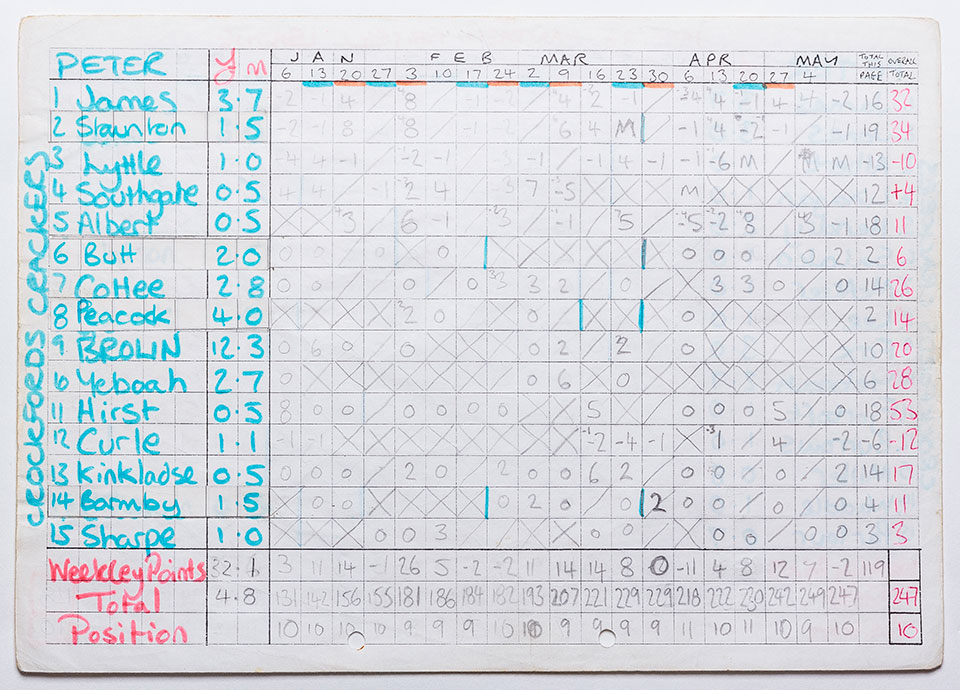 CROCKFORDS CRACKERS
JAN FEB MAR APR MAY TOTAL THIS PAGE OVERALL TOTAL
PETER £ m 6 13 20 27 3 10 17 24 2 9 16 23 30 6 13 20 27 4
1 James 3.7 -2 -1 4 16 32
2 Staunton 1.5 -2 -1 8 6 4 M -1 -1 -1 19 34
3 Lyttle 1.0 -4 4 -1 -1 -1 -1 4 -1 -1 -6 M M -13 -10
4 Southgate 0.5 4 4 -1 4 7 M 12 +4
5 Albert 0.5 6 -1 18 11
6 Butt 2.0 0 0 0 0 0 2 2 6
7 Cottee 2.8 0 0 0 0 0 3 2 0 3 3 0 0 14 26
8 Peacock 4.0 0 0 0 2 14
9 BROLIN 12.3 0 6 0 0 0 2 0 10 20
10 Yeboah 2.7 0 0 6 0 6 28
11 Hirst 0.5 8 0 0 0 0 0 0 5 0 0 0 5 0 18 53
12 Curle 1.1 -1 -1 -2 -4 -1 4 -2 -6 -12
13 Kinkladse 0.5 0 0 0 2 0 2 0 0 6 2 0 0 0 2 14 17
14 Barmby 1.5 0 0 0 2 0 0 2 0 0 0 0 4 11
15 Sharpe 1.0 0 0 3 0 0 0 0 0 0 3 3
Weekley Points 32.1 3 11 14 -1 26 5 -2 -2 11 14 14 8 0 -11 4 8 12 7 -2 119
Total 4.8 131 142 156 155 181 186 184 182 193 207 221 229 229 218 222 230 242 249 247 247
Position 10 10 10 10 9 9 9 10 10 9 9 9 9 11 10 11 10 9 10 10